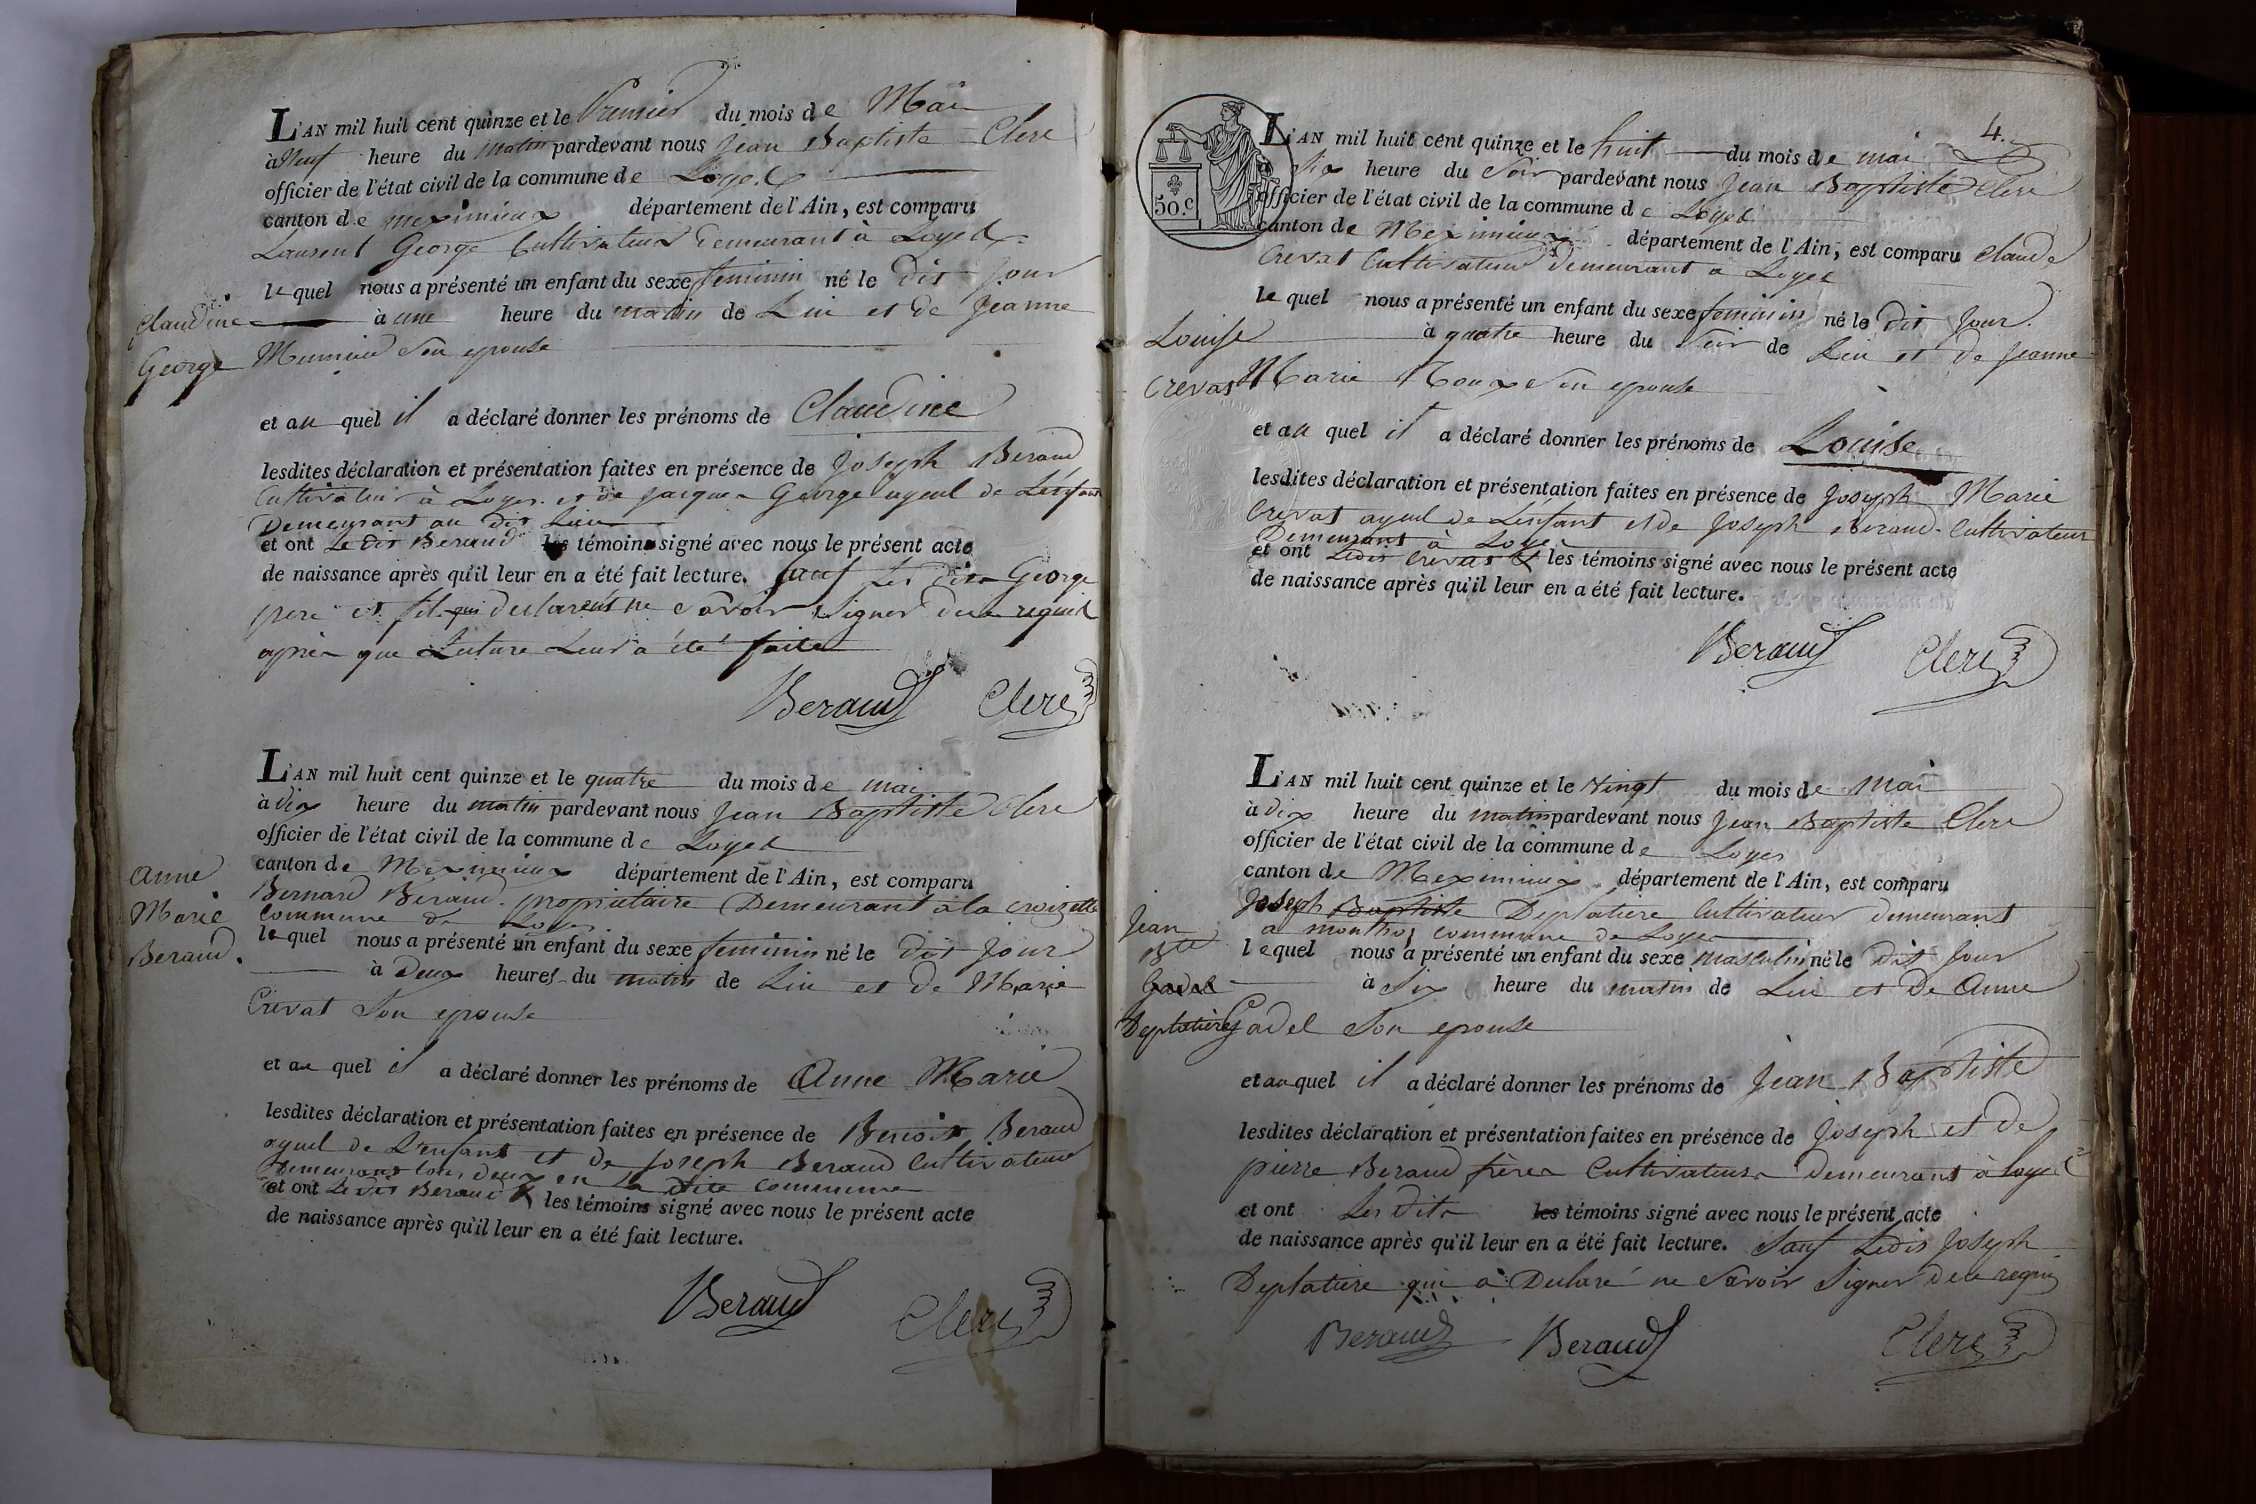 L'AN mil huit cent quinze et le Premier du mois de Mai
à Neuf heure du matin pardevant nous Jean Baptiste Clere
officier de l'état civil de la commune de Loyes
canton de meximieux département de l'Ain, est comparu
Laurent George Cultivateur demeurant à Loyes
lequel nous a présenté un enfant du sexe feminin né le dit Jour
à une heure du matin de Lui et de Jeanne
son epouse
Claudine
George
et au quel il a déclaré donner les prénoms de Claudine
lesdites déclaration et présentation faites en présence de Joseph Beraud
Cultivateur à Loyes et de jacques George ayeul de L'enfant
Demeurant au dit Lieu
et ont Le dit Beraud les témoins signé avec nous le présent acte
de naissance après qu'il leur en a été fait lecture. sauf Les dits George
pere et fils qui declarent ne savoir signer de ce requis
après que Lecture Leur a été faite
Beraud Clere
L'AN mil huit cent quinze et le quatre du mois de mai
à dix heure du matin pardevant nous Jean Baptiste Clere
officier de l'état civil de la commune de Loyes
canton de Meximieux département de l'Ain, est comparu
Bernard Béraud propriétaire Demeurant à la croizette
commune de Loyes
lequel nous a présenté un enfant du sexe feminin né le dit Jour
à Deux heures du matin de Lui et de Marie
Crevat Son epouse
anne
Marie
Beraud.
et au quel il a déclaré donner les prénoms de Anne Marie
lesdites déclaration et présentation faites en présence de Benoit Beraud
ayeul de L'enfant et de Joseph Beraud Cultivateur
Demeurant tous deux en La dite commune
et ont Le dit Beraud & les témoins signé avec nous le présent acte
de naissance après qu'il leur en a été fait lecture.
Beraud Clere
4.
50.C
L'AN mil huit cent quinze et le huit du mois de mai
Six heure du Soir pardevant nous Jean Baptiste Clere
officier de l'état civil de la commune de Loyes
canton de Meximieux département de l'Ain, est comparu Claude
Crevat Cultivateur demeurant a Loyes
lequel nous a présenté un enfant du sexe feminin né le dit Jour.
à quatre heure du Soir de Lui et de Jeanne
Marie Roux Son epouse
Louise
Crevat
et au quel il a déclaré donner les prénoms de Louise
lesdites déclaration et présentation faites en présence de Joseph Marie
Crevat ayeul de L'enfant et de Joseph Beraud Cultivateur
Demeurant à Loyes
et ont Ledit Crevat & les témoins signé avec nous le présent acte
de naissance après qu'il leur en a été fait lecture.
Beraud Clere
L'AN mil huit cent quinze et le Vingt du mois de Mai
à dix heure du matin pardevant nous Jean Baptiste Clere
officier de l'état civil de la commune de Loyes
canton de Meximieux département de l'Ain, est comparu
Joseph Baptiste Deplatiere Cultivateur demeurant
a monthoz commune de Loyes
lequel nous a présenté un enfant du sexe masculin né le dit Jour
à Six heure du matin de Lui et De Anne
Gadel Son epouse
Jean
Bte
Gadel
Deplatiere
et au quel il a déclaré donner les prénoms de Jean Baptiste
lesdites déclaration et présentation faites en présence de Joseph et de
pierre Beraud frères Cultivateurs Demeurant à Loyes
et ont Les dits les témoins signé avec nous le présent acte
de naissance après qu'il leur en a été fait lecture. Sauf Ledit Joseph
Deplatiere qui a Declaré ne Savoir Signer de ce requis
Beraud Beraud Clere